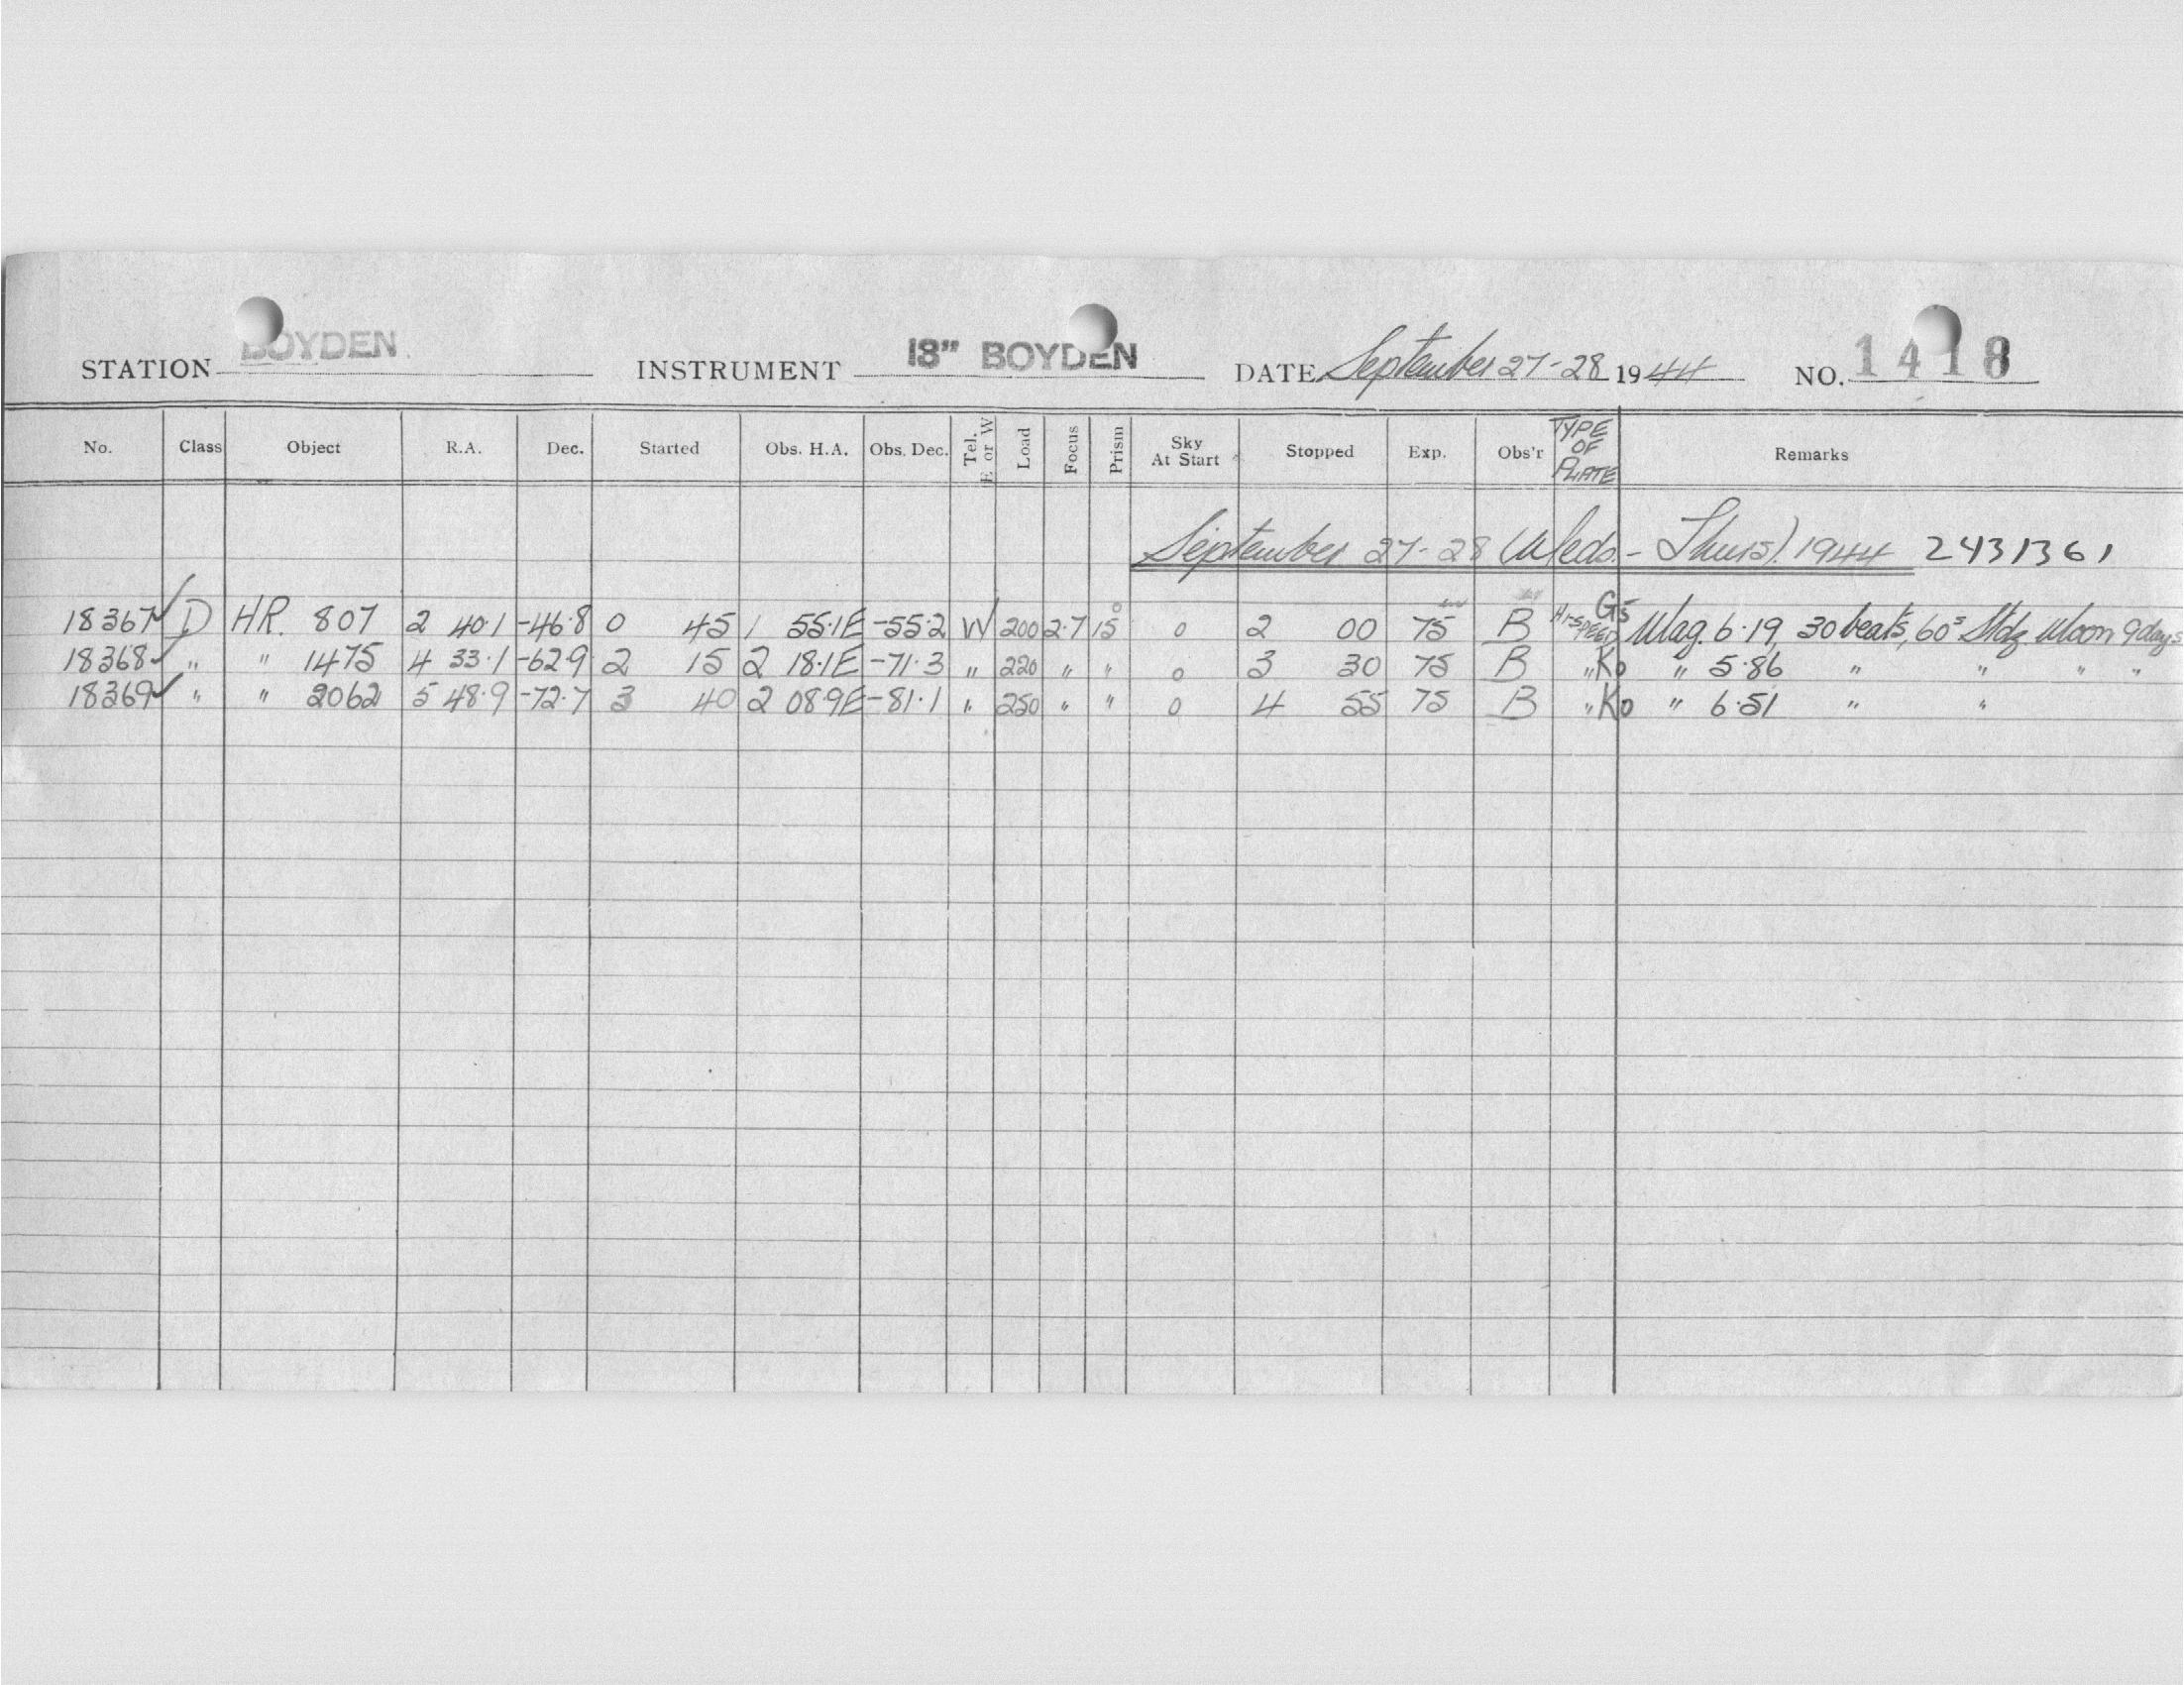 STATION BOYDEN INSTRUMENT 18" BOYDEN DATE September 27-28 1944 NO. 1418
No. Class Object R.A. Dec. Started Obs. H.A. Obs. Dec. Tel. E or W Load Focus Prism Sky At Start Stopped Exp. Obs'r TYPE OF PLATE Remarks
September 27-28 (Weds.- Thurs). 1944 2431361
18367 ✓ D HR. 807 2 40.1 -46.8 0 45 1 55.1E -55.2 W 200 2.7 15° 0 2 00 75 B HI-SPEED G5 Mag. 6.19, 30 beats, 60s Stdz. Moon 9 days
18368 ✓ " " 1475 4 33.1 -62.9 2 15 2 18.1E -71.3 " 220 " " 0 3 30 75 B " K0 " 5.86 " " " "
18369 ✓ " " 2062 5 48.9 -72.7 3 40 2 08.9E -81.1 " 250 " " 0 4 55 75 B " K0 " 6.51 " "